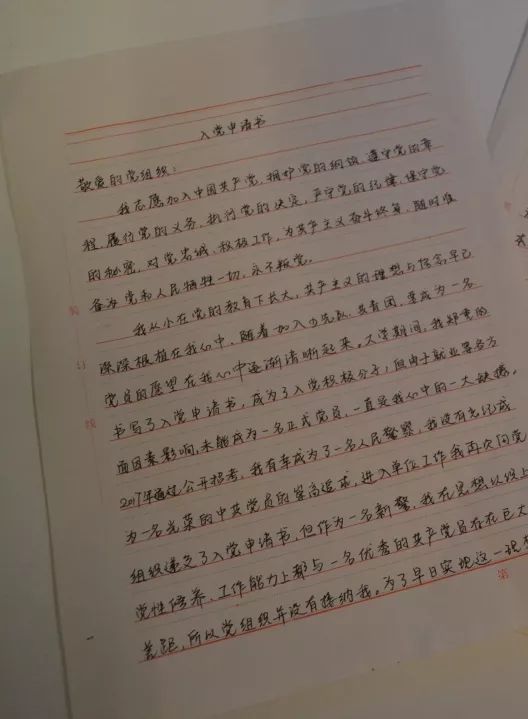 入党申请书
敬爱的党组织:
我志愿加入中国共产党,拥护党的纲领,遵守党的章
程,履行党的义务,执行党的决定,严守党的纪律,保守党
的秘密,对党忠诚,积极工作,为共产主义奋斗终身,随时准
备为党和人民牺牲一切,永不叛党。
我从小在党的教育下长大,共产主义的理想与信念早已
深深根植在我心中,随着加入少先队、共青团,要成为一名
党员的愿望在我心中逐渐清晰起来。大学期间,我郑重的
书写了入党申请书,成为了入党积极分子,但由于就业等多方
面因素影响,未能成为一名正式党员,一直是我心中的一大缺憾。
2017年通过公开招考,我有幸成为了一名人民警察,我没有忘记成
为一名光荣的中共党员的崇高追求,进入单位工作我再次向党
组织递交了入党申请书,但作为一名新警,我在思想认识上
党性修养、工作能力上都与一名优秀的共产党员存在巨大
差距,所以党组织并没有接纳我。为了早日实现这一
订
第